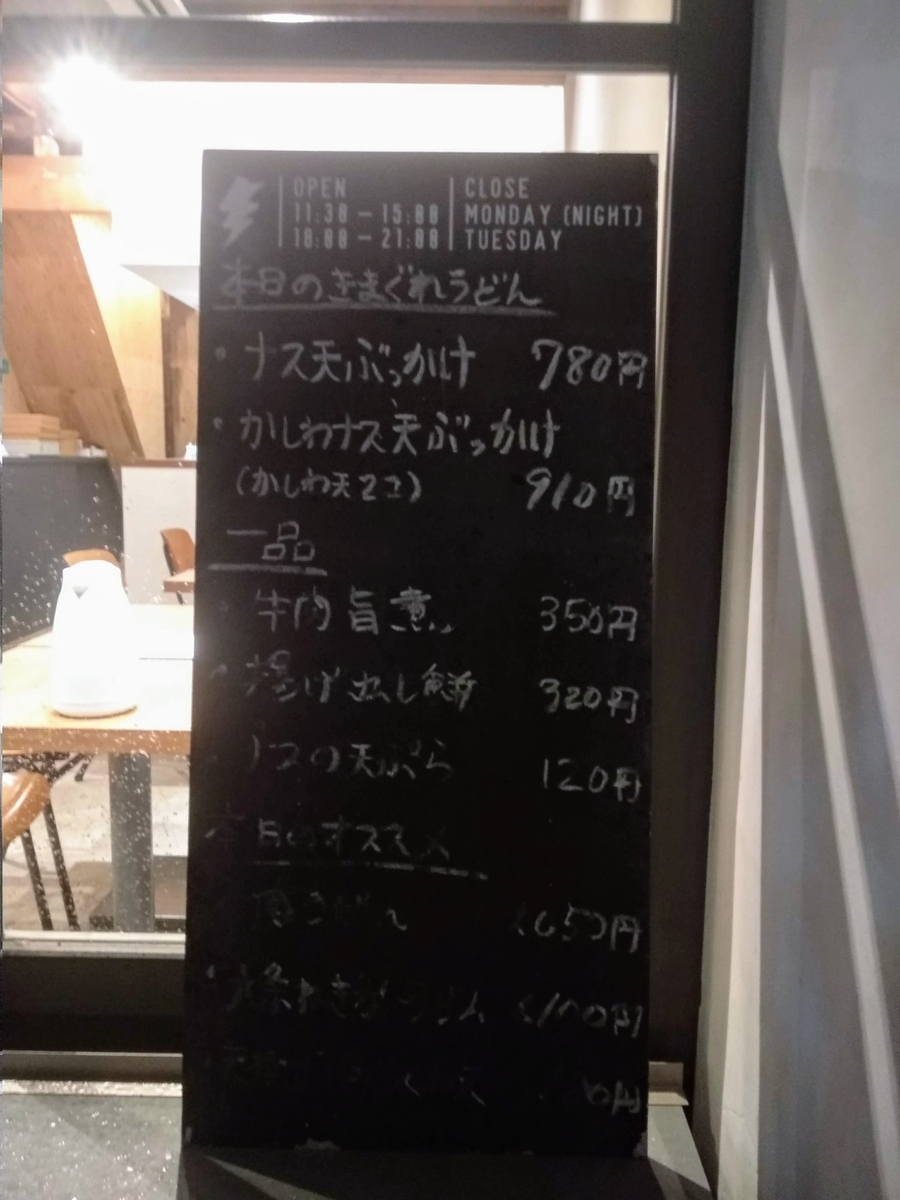 OPEN
11:30 — 15:00
18:00 — 21:00
CLOSE
MONDAY (NIGHT)
TUESDAY
本日のきまぐれうどん
・ナス天ぶっかけ 780円
・かしわナス天ぶっかけ
(かしわ天2コ) 910円
一品
・牛肉旨煮 350円
・揚げ出し餅 320円
・ナスの天ぷら 120円
本日のオススメ
650円
円
円